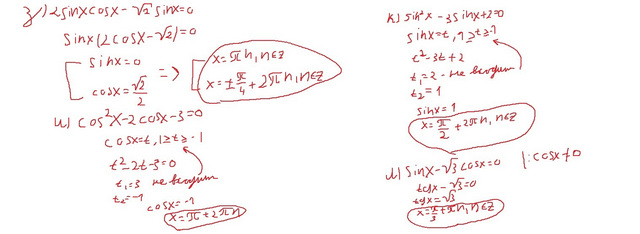 з) 2sinxcosx - √2 sinx=0
sinx(2cosx-√2)=0
sinx=0
cosx=√2/2
=>
x=πn, n∈z
x=±π/4+2πn, n∈z
и) cos²x-2cosx-3=0
cosx=t, 1≥t≥-1
t²-2t-3=0
t₁=3 не входит
t₂=-1
cosx=-1
x=π+2πn
к) sin²x-3sinx+2=0
sinx=t, 1≥t≥-1
t²-3t+2
t₁=2 - не входит
t₂=1
sinx=1
x=π/2+2πn, n∈z
л) sinx-√3cosx=0 |:cosx≠0
tgx-√3=0
tgx=√3
x=π/3+πn, n∈z